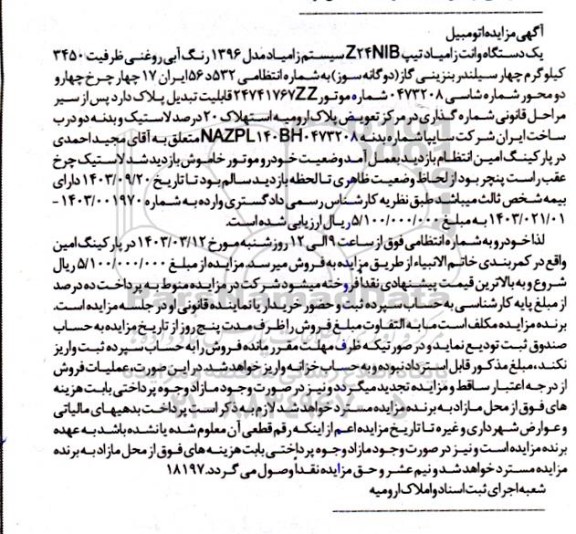 آگهی مزایده اتومبیل
یک دستگاه وانت زامیاد تیپ Z24NIB سیستم زامیاد مدل ۱۳۹۶ رنگ آبی روغنی ظرفیت ۳۴۵۰
کیلوگرم چهار سیلندر بنزینی گاز (دوگانه سوز) به شماره انتظامی ۵۳۲د۵۶ ایران ۱۷ چهار چرخ چهار و
دو محور شماره شاسی ۰۴۷۳۲۰۸ شماره موتور ۲۴۷۴۱۷۶۷ZZ قابلیت تبدیل پلاک دارد پس از سیر
مراحل قانونی شماره گذاری در مرکز تعویض پلاک ارومیه استهلاک ۲۰ درصد لاستیک و بدنه دو درب
ساخت ایران شرکت سایپا شماره بدنه NAZPL۱۴۰BH۰۴۷۳۲۰۸ متعلق به آقای مجید احمدی
در پارکینگ امین انتظام بازدید بعمل آمد وضعیت خودرو موتور خاموش بازدید شد لاستیک چرخ
عقب راست پنچر بود از لحاظ وضعیت ظاهری تا لحظه بازدید سالم بود تا تاریخ ۱۴۰۳/۰۹/۲۰ دارای
بیمه شخص ثالث میباشد طبق نظریه کارشناس رسمی دادگستری وارده به شماره ۱۴۰۳/۰۰۱۹۷۰ -
۱۴۰۳/۰۲/۰۱ به مبلغ ۵/۱۰۰/۰۰۰/۰۰۰ ریال ارزیابی شده است.
لذا خودرو به شماره انتظامی فوق از ساعت ۹ الی ۱۲ روز شنبه مورخ ۱۴۰۳/۰۳/۱۲ در پارکینگ امین
واقع در کمربندی خاتم الانبیاء از طریق مزایده به فروش میرسد مزایده از مبلغ ۵/۱۰۰/۰۰۰/۰۰۰ ریال
شروع و به بالاترین قیمت پیشنهادی نقداً فروخته میشود شرکت در مزایده منوط به پرداخت ده درصد
از مبلغ پایه کارشناسی به حساب سپرده ثبت و حضور خریدار یا نماینده قانونی او در جلسه مزایده است.
برنده مزایده مکلف است مابه التفاوت مبلغ فروش را ظرف مدت پنج روز از تاریخ مزایده به حساب
صندوق ثبت تودیع نماید و در صورتیکه ظرف مهلت مقرر مانده فروش را به حساب سپرده ثبت واریز
نکند، مبلغ مذکور قابل استرداد نبوده و به حساب خزانه واریز خواهد شد در این صورت، عملیات فروش
از درجه اعتبار ساقط و مزایده تجدید میگردد و نیز در صورت وجود مازاد وجوه پرداختی بابت هزینه
های فوق از محل مازاد به برنده مزایده مسترد خواهد شد لازم به ذکر است پرداخت بدهیهای مالیاتی
و عوارض شهرداری و غیره تا تاریخ مزایده اعم از اینکه رقم قطعی آن معلوم شده یا نشده باشد به عهده
برنده مزایده است و نیز در صورت وجود مازاد وجوه پرداختی بابت هزینه های فوق از محل مازاد به برنده
مزایده مسترد خواهد شد و نیم عشر و حق مزایده نقداً وصول می گردد. ۱۸۱۹۷
شعبه اجرای ثبت اسناد و املاک ارومیه